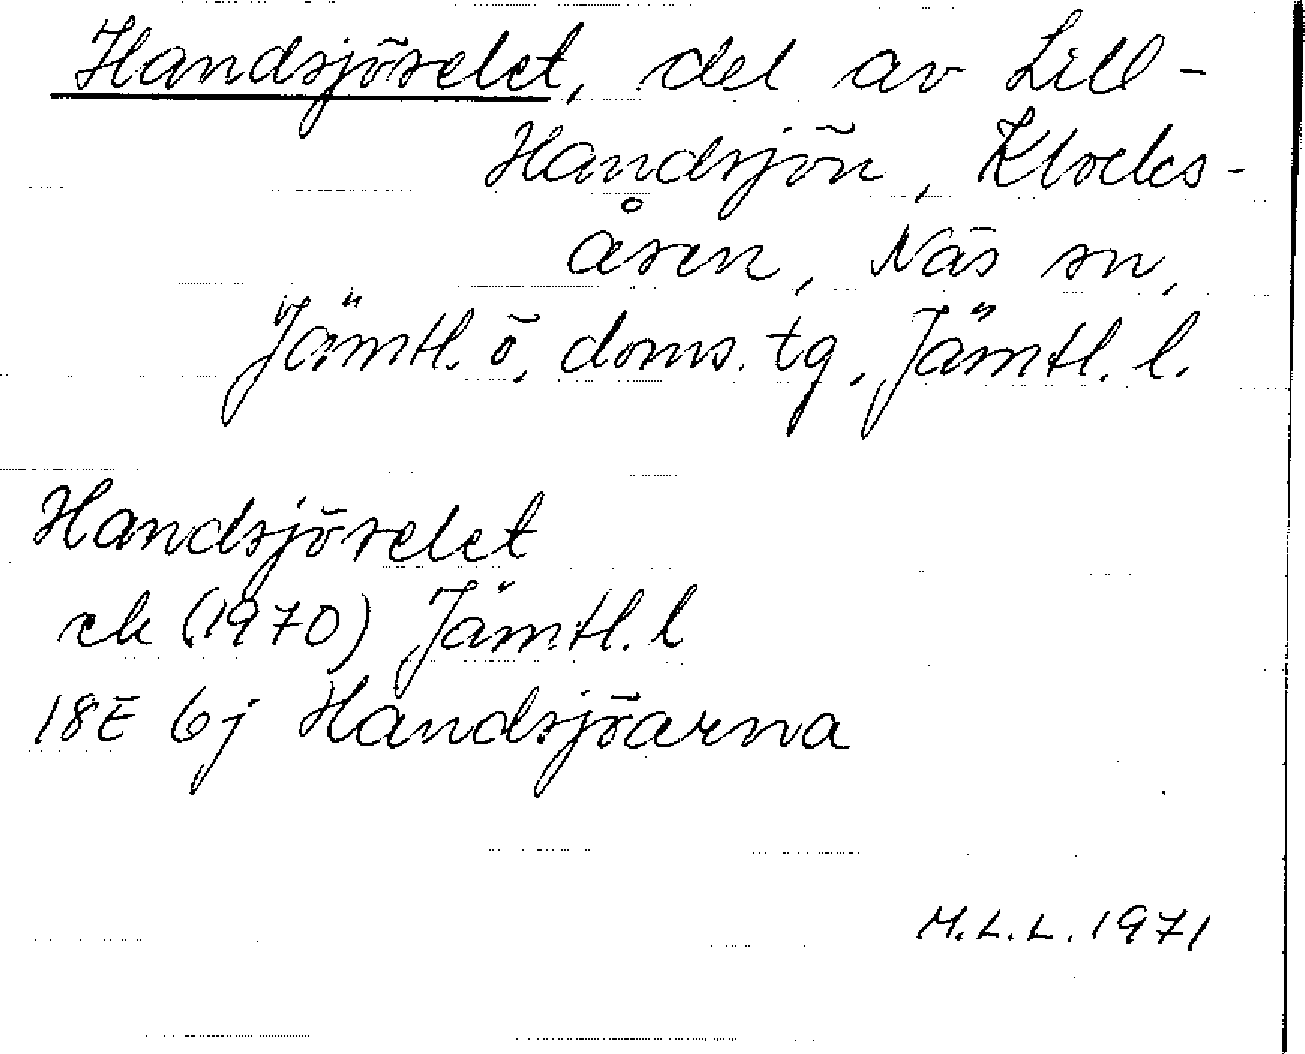 Handsjöselet, del av Lill-
Handsjön, Klocks-
åsen, Näs sn,
Jämtl. ö. doms. tg, Jämtl. l.
Handsjöselet
ek (1970) Jämtl. l
18E 6j Handsjöarna
M.L.L. 1971